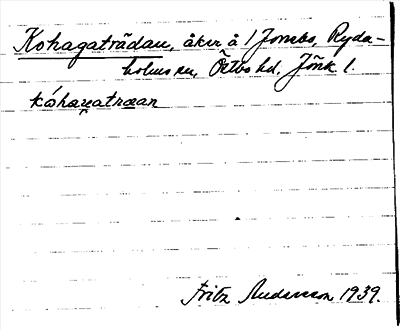 Kohagaträdan, åker å 1 Jonsbo, Ryda-
holms sn, Östbo hd, Jönk l.
kóhaγatræan
Fritz Andersson 1939.